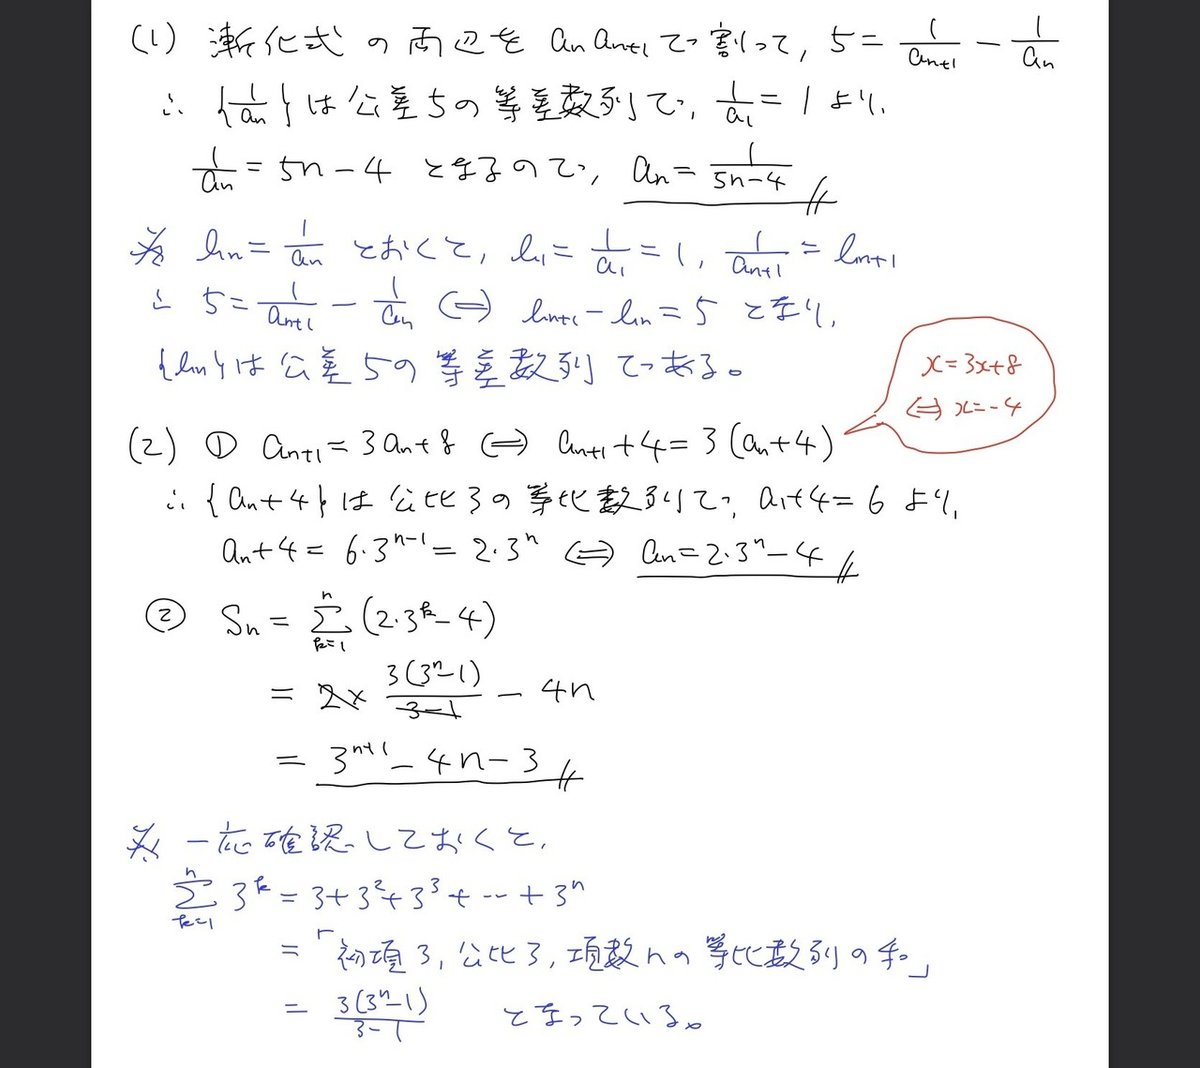 (1) 漸化式の両辺を anan+1 で割って, 5 = 1/an+1 − 1/an
∴ {1/an} は公差5の等差数列で, 1/a1 = 1 より,
1/an = 5n−4 となるので, an = 1/(5n−4)
※ bn = 1/an とおくと, b1 = 1/a1 = 1, 1/an+1 = bn+1
∴ 5 = 1/an+1 − 1/an ⇔ bn+1 − bn = 5 となり,
{bn} は公差5の等差数列である。
x = 3x+8
⇔ x = −4
(2) ① an+1 = 3an+8 ⇔ an+1+4 = 3(an+4)
∴ {an+4} は公比3の等比数列で, a1+4 = 6 より,
an+4 = 6・3^(n−1) = 2・3^n ⇔ an = 2・3^n − 4
② Sn = Σ[k=1→n] (2・3^k − 4)
= 2× 3(3^n−1)/(3−1) − 4n
= 3^(n+1) − 4n − 3
※ 一応確認しておくと,
Σ[k=1→n] 3^k = 3+3^2+3^3+…+3^n
= 「初項3, 公比3, 項数nの等比数列の和」
= 3(3^n−1)/(3−1) となっている。